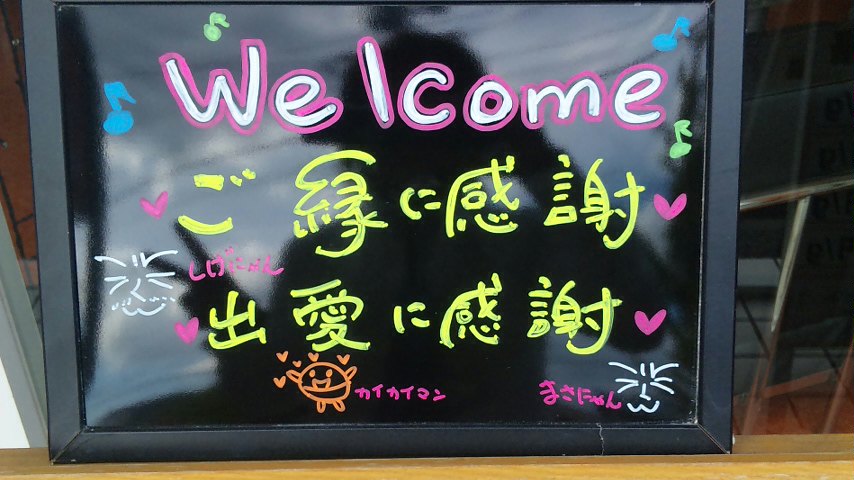 Welcome
ご縁に感謝
しげにゃん
出愛に感謝
カイカイマン
まさにゃん